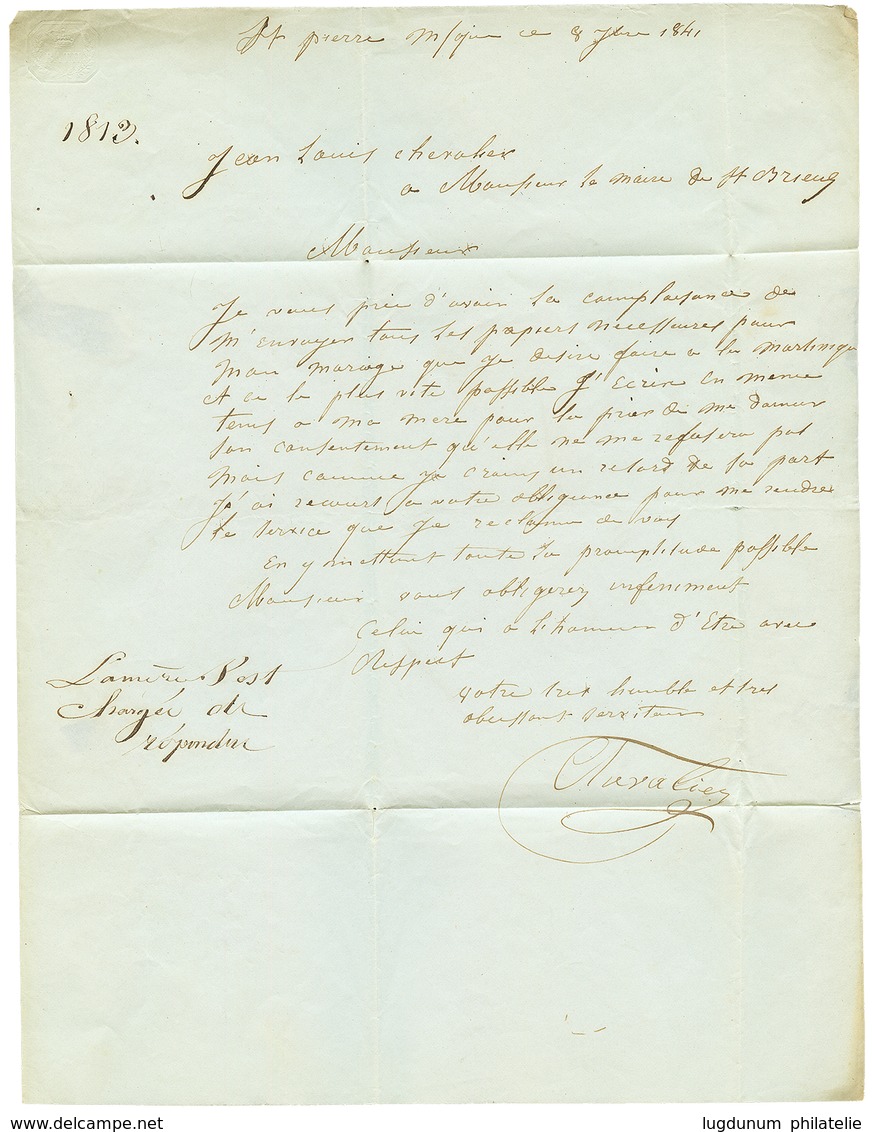 St pierre M/que ce 8 7bre 1841
1813.
Jean Louis chevalier
a Monsieur le maire de St Brieuc
Monsieur
Je vous prie d'avoir la complaisance de
m'envoyer tous les papiers necessaires pour
mon mariage que je desire faire a la martinique
et ce le plus vite possible J'Ecris En meme
tems a ma mere pour la prier de me donner
son consentement qu'elle ne me refusera pas
mais comme je crains un retard de sa part
j'ai recours a votre obligance pour me rendre
le service que je reclame de vous
En y mettant toute la promptitude possible
Monsieur vous obligerez infiniment
celui qui a l'honneur d'Etre avec
Respect
votre tres humble et tres
obeissant serviteur
La mère s'est
Chargée de
répondre
Chevalier
delcampe.net
lugdunum philatelie